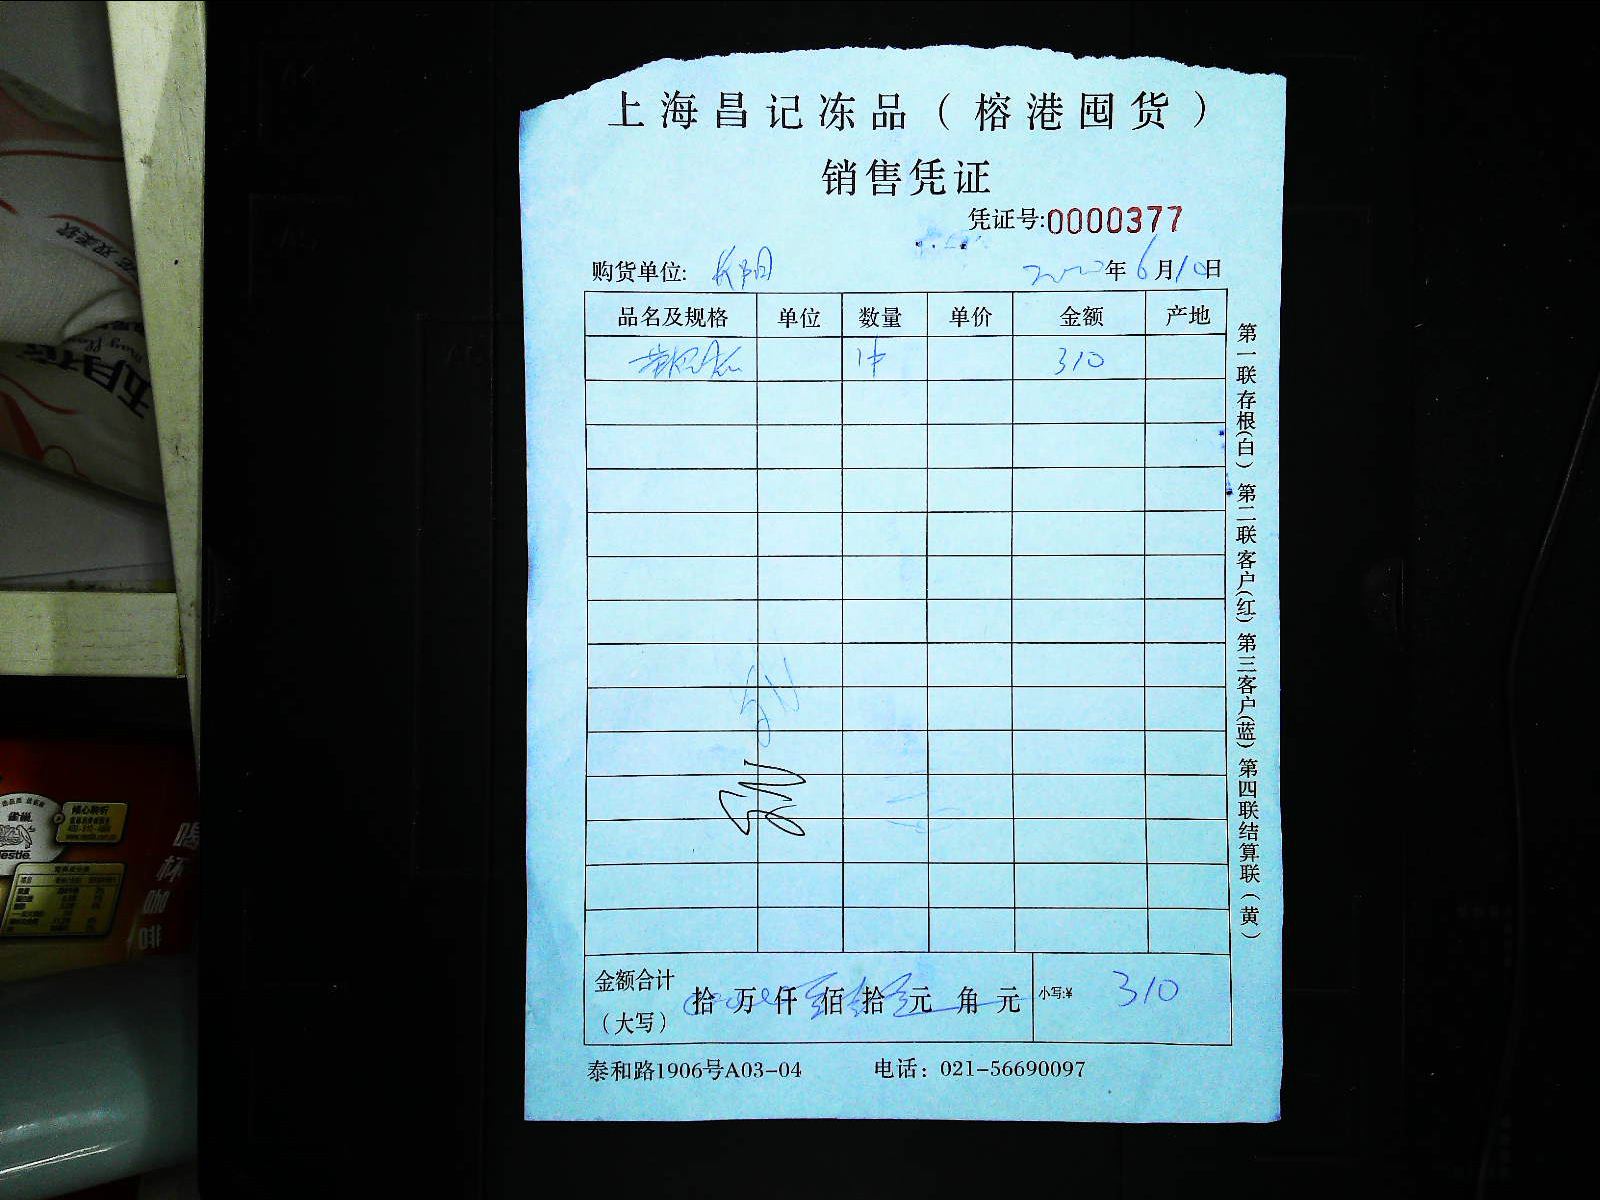 上海昌记冻品（榕港囤货）
销售凭证
凭证号:0000377
购货单位: 年6月10日
品名及规格 单位 数量 单价 金额 产地
1件 310
第一联存根(白) 第二联客户(红) 第三客户(蓝) 第四联结算联(黄)
金额合计
（大写） 拾 万 仟 佰 拾 元 角 元 小写:¥ 310
泰和路1906号A03-04 电话：021-56690097
五月花
倾心聆听
Nestlé
喝杯咖啡